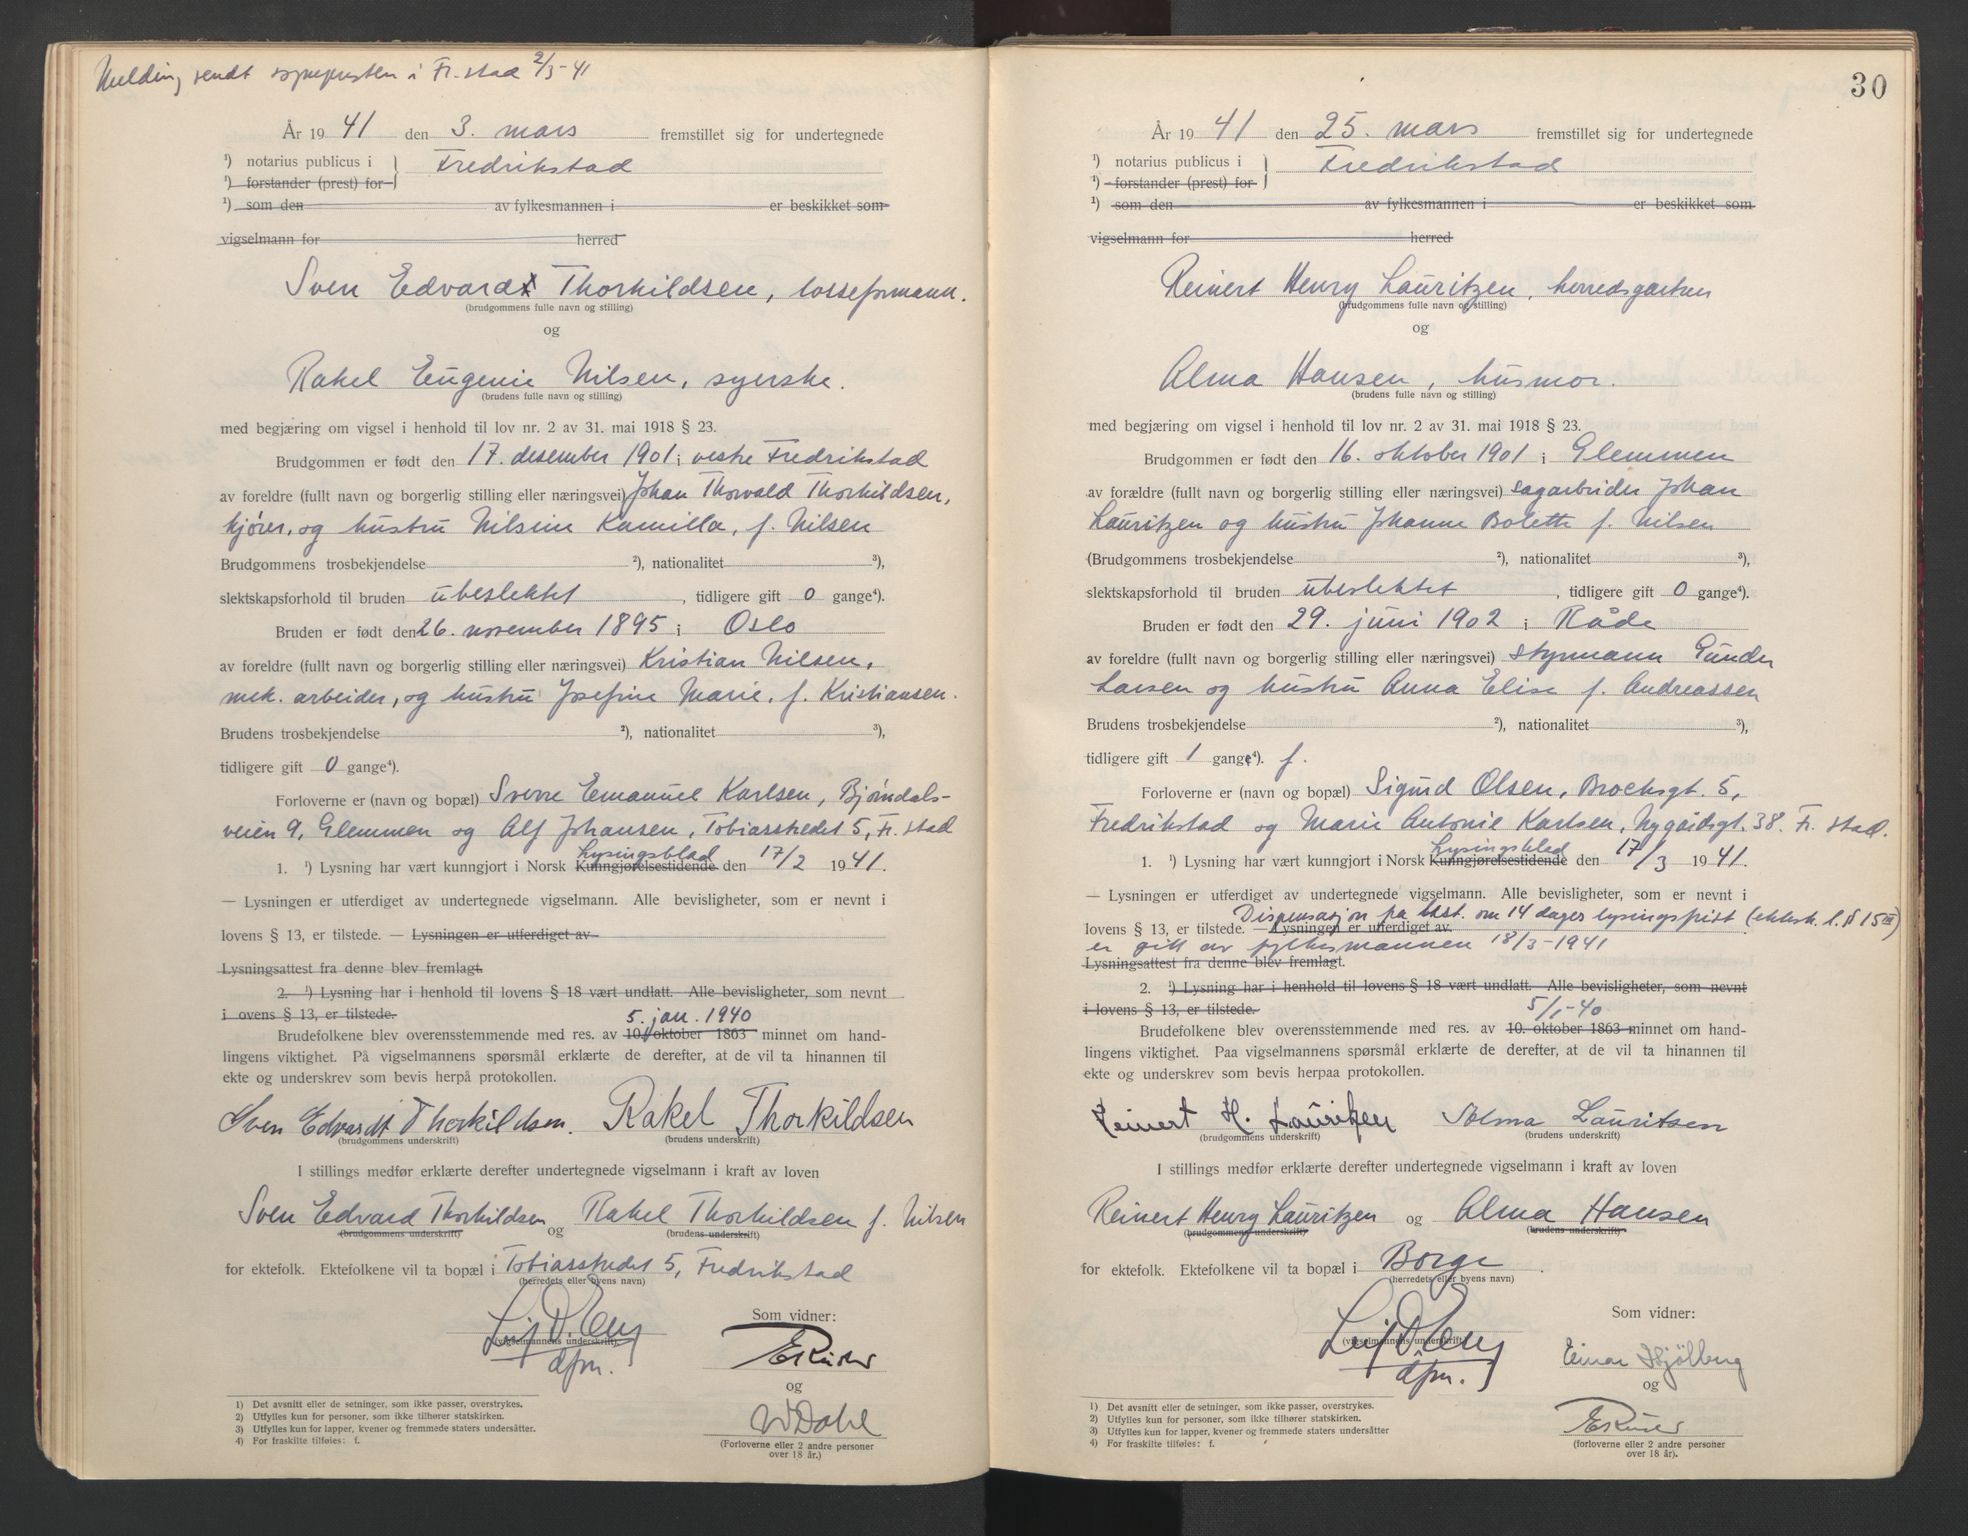 Melding sendt sogneprsten i Fr.stad 2/3-41
År 1941 den 3. mars fremstillet sig for undertegnede
¹) notarius publicus i } Fredrikstad
¹) forstander (prest) for
¹) som den av fylkesmannen i er beskikket som
vigselmann for herred
Sven Edvard Thorkildsen, losseformann.
(brudgommens fulle navn og stilling)
og
Rakel Eugenie Nilsen, syerske.
(brudens fulle navn og stilling)
med begjæring om vigsel i henhold til lov nr. 2 av 31. mai 1918 § 23.
Brudgommen er født den 17. desember 1901 i vestre Fredrikstad
av foreldre (fullt navn og borgerlig stilling eller næringsvei) Johan Thorvald Thorkildsen,
kjører, og hustru Nilsine Kamilla, f. Nilsen
Brudgommens trosbekjendelse ²), nationalitet ³),
slektskapsforhold til bruden ubeslektet, tidligere gift 0 gange⁴).
Bruden er født den 26. november 1895 i Oslo
av foreldre (fullt navn og borgerlig stilling eller næringsvei) Kristian Nilsen,
mek. arbeider, og hustru Josefine Marie, f. Kristiansen.
Brudens trosbekjendelse ²), nationalitet ³),
tidligere gift 0 gange⁴).
Forloverne er (navn og bopæl) Sverre Emanuel Karlsen, Bjørndals-
veien 9, Glemmen og Alf Johansen, Tobiasstredet 5, Fr.stad
Lysingsblad
1. ¹) Lysning har vært kunngjort i Norsk Kunngjørelsestidende den 17/2 1941.
— Lysningen er utferdiget av undertegnede vigselmann. Alle bevisligheter, som er nevnt i
lovens § 13, er tilstede. — Lysningen er utferdiget av
Lysningsattest fra denne blev fremlagt.
2. ¹) Lysning har i henhold til lovens § 18 vært undlatt. Alle bevisligheter, som nevnt
i ovens § 13, er tilstede.
5. jan. 1940
Brudefolkene blev overensstemmende med res. av 10. oktober 1863 minnet om hand-
lingens viktighet. På vigselmannens spørsmål erklærte de derefter, at de vil ta hinannen til
ekte og underskrev som bevis herpå protokollen.
Sven Edvardt Thorkildsen. Rakel Thorkildsen
(brudgommens underskrift) (brudens underskrift)
I stillings medfør erklærte derefter undertegnede vigselmann i kraft av loven
Sven Edvard Thorkildsen og Rakel Thorkildsen f. Nilsen
(brudgommens underskrift) (brudens underskrift)
for ektefolk. Ektefolkene vil ta bopæl i Tobiasstredet 5, Fredrikstad
(herredets eller byens navn)
Som vidner:
(vigselmannens underskrift).
dfm.
og
W Dahl
(Forloverne eller 2 andre personer
over 18 år.)
1) Det avsnitt eller de setninger, som ikke passer, overstrykes.
2) Utfylles kun for personer, som ikke tilhører statskirken.
3) Utfylles kun for lapper, kvener og fremmede staters undersåtter.
4) For fraskilte tilføies: f.
30
År 1941 den 25. mars fremstillet sig for undertegnede
¹) notarius publicus i } Fredrikstad
¹) forstander (prest) for
¹) som den av fylkesmannen i er beskikket som
vigselmann for herred
Reinert Henry Lauritzen, herredsgartner
(brudgommens fulle navn og stilling)
og
Alma Hansen, husmor.
(brudens fulle navn og stilling)
med begjæring om vigsel i henhold til lov nr. 2 av 31. mai 1918 § 23.
Brudgommen er født den 16. oktober 1901 i Glemmen
av forældre (fullt navn og borgerlig stilling eller næringsvei) sagarbeider Johan
Lauritzen og hustru Johanne Bolette f. Nilsen
(Brudgommens trosbekjendelse ²), nationalitet ³),
slektskapsforhold til bruden ubeslektet, tidligere gift 0 gange⁴).
Bruden er født den 29. juni 1902 i Råde
av foreldre (fullt navn og borgerlig stilling eller næringsvei) styrmann Gunder
Larsen og hustru Anna Elise f. Andreassen
Brudens trosbekjendelse ²), nationalitet ³),
tidligere gift 1 gange⁴). f.
Forloverne er (navn og bopæl) Sigurd Olsen, Brochsgt. 5,
Fredrikstad og Marie Antonie Karlsen, Nygårdsgt. 38. Fr.stad.
Lysingsblad
1. ¹) Lysning har vært kunngjort i Norsk Kunngjørelsestidende den 17/3 1941.
— Lysningen er utferdiget av undertegnede vigselmann. Alle bevisligheter, som er nevnt i
Dispensasjon på best. om 14 dager lysingsfrist (ektesk. l. § 15 III)
lovens § 13, er tilstede. — Lysningen er utferdiget av.
er gitt av fylkesmannen 18/3-1941
Lysningsattest fra denne blev fremlagt.
2. ¹) Lysning har i henhold til lovens § 18 vært undlatt. Alle bevisligheter, som nevnt
i lovens § 13, er tilstede.
5/1-40
Brudefolkene blev overensstemmende med res. av 10. oktober 1863 minnet om hand-
lingens viktighet. Paa vigselmannens spørsmål erklærte de derefter, at de vil ta hinannen til
ekte og underskrev som bevis herpaa protokollen.
Reinert H. Lauritzen Alma Lauritsen
(brudgommens underskrift) (brudens underskrift)
I stillings medfør erklærte derefter undertegnede vigselmann i kraft av loven
Reinert Henry Lauritzen og Alma Hansen
(brudgommens underskrift) (brudens underskrift)
for ektefolk. Ektefolkene vil ta bopæl i Borge.
(herredets eller byens navn)
Som vidner:
(vigselmannens underskrift)
dfm.
Einar Hjölberg
og
(forloverne eller 2 andre personer
over 18 år).
1) Det avsnitt eller de setninger, som ikke passer, overstrykes.
2) Utfylles kun for personer, som ikke tilhører statskirken.
3) Utfylles kun for lapper, kvener og fremmede staters undersåtter
4) For fraskilte tilføies: f.